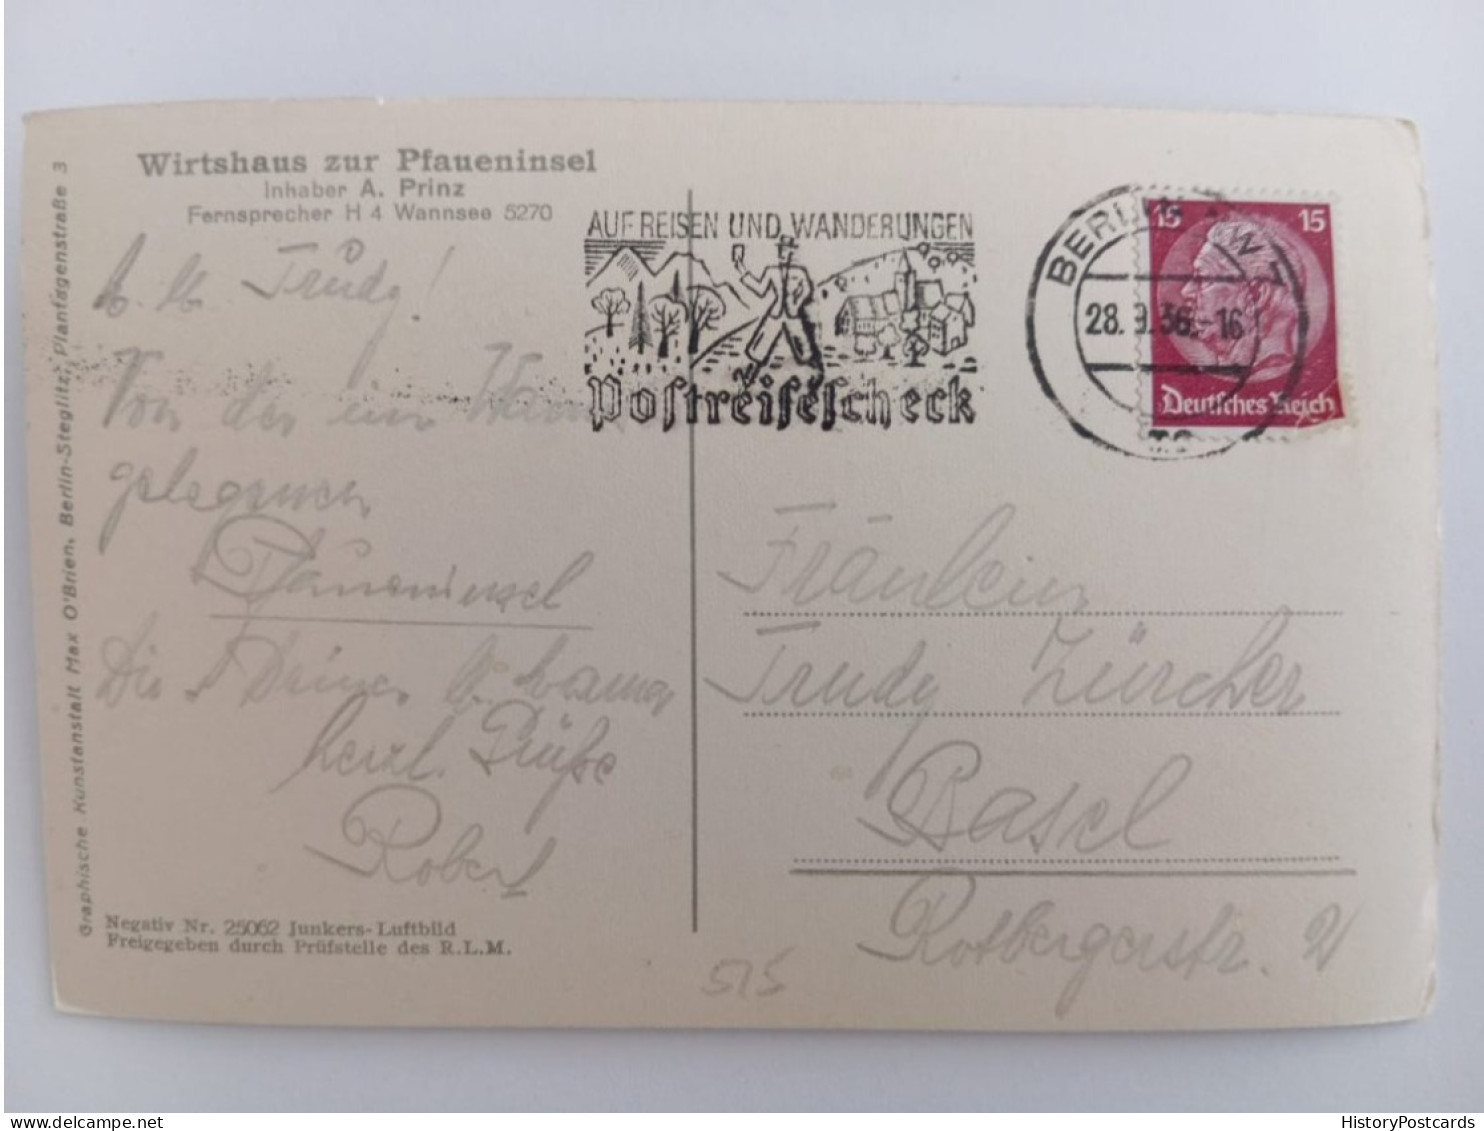 Wirtshaus zur Pfaueninsel
Inhaber A. Prinz
Fernsprecher H 4 Wannsee 5270
Trudy!
Von der im
gelegenen
Pfaueninsel
Die
herzl. Grüße
Robert
Negativ Nr. 25062 Junkers-Luftbild
Freigegeben durch Prüfstelle des R.L.M.
Graphische Kunstanstalt Max O'Brien, Berlin-Steglitz, Plantagenstraße 3
AUF REISEN UND WANDERUNGEN
Postreisescheck
BERLIN
28.9.36.-16
15 15
Deutsches Reich
Fräulein
Trudy Zürcher
Basel
Rotbergerstr. 21
515
HistoryPostcards
delcampe.net